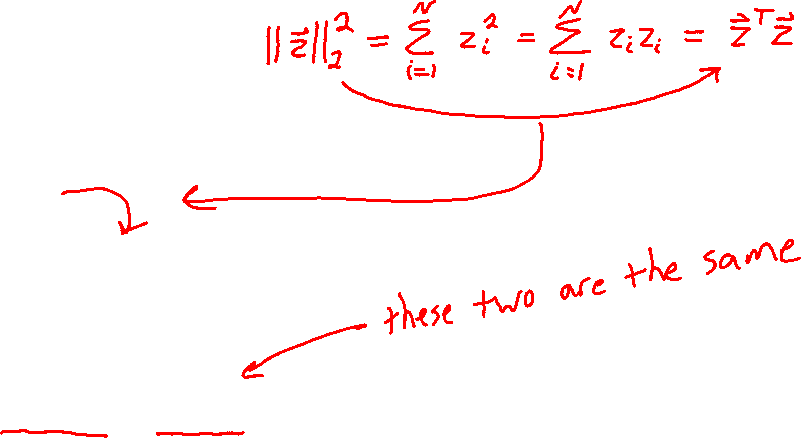 ||z⃗||₂² = Σᵢ₌₁ᴺ zᵢ² = Σᵢ₌₁ᴺ zᵢzᵢ = z⃗ᵀz⃗
these two are the same